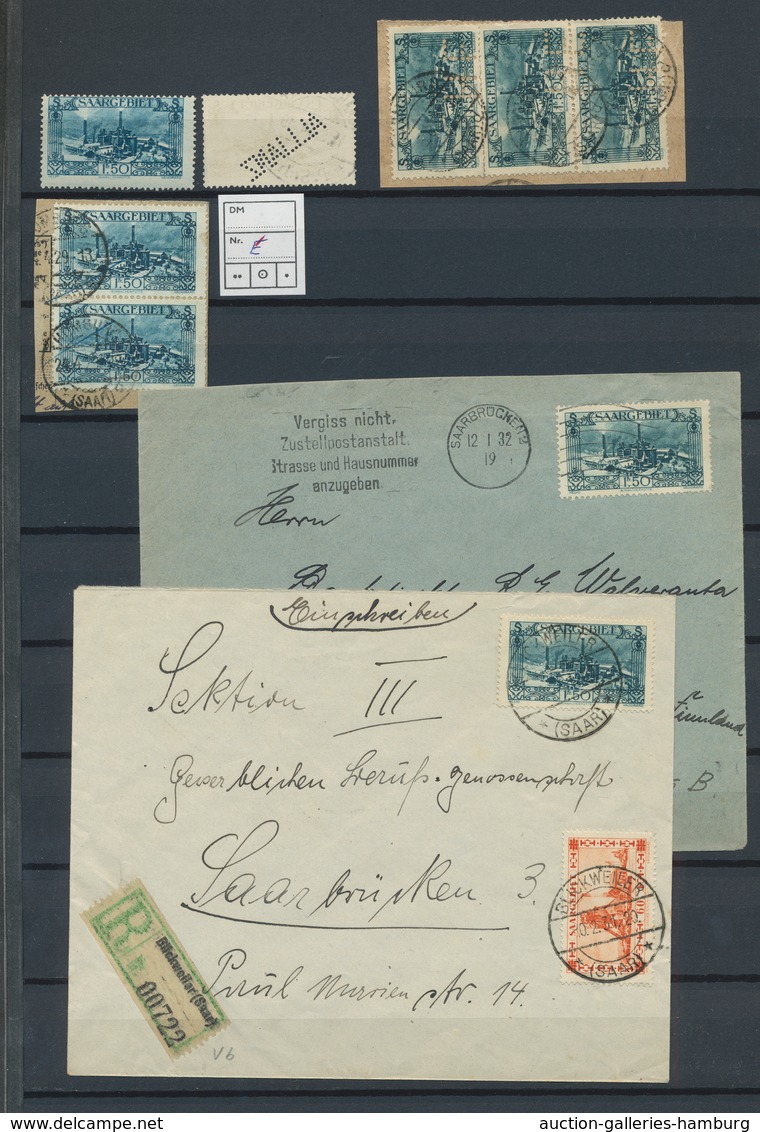 SAARGEBIET
1.50
DM
Nr.
SAARGEBIET
1.50
SAARGEBIET
1.50
(SAAR)
Vergiss nicht,
Zustellpostanstalt,
Strasse und Hausnummer
anzugeben
SAARBRÜCKEN 2
12 1 32
19
SAARGEBIET
1.50
Herrn
Finnland
B.
Einschreiben
SAARGEBIET
1.50
(SAAR)
Sektion III
Gewerblichen Berufs-genossenschaft
Saarbrücken 3.
SAARGEBIET
BLICKWEILER
(SAAR)
R
Blickweiler (Saar)
00722
Paul Marien str. 14.
V6
auction-galleries-hamburg.com